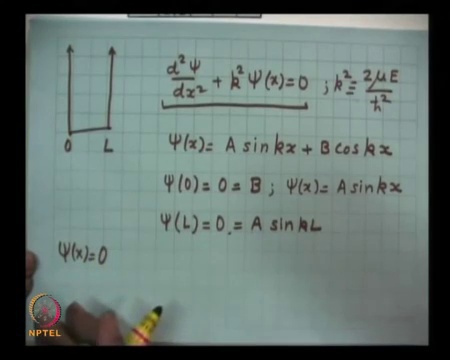 d²Ψ/dx² + k²Ψ(x)=0 ; k² = 2μE/ħ²
0 L
Ψ(x)= A sinkx + B coskx
Ψ(0)=0=B ; Ψ(x)= A sinkx
Ψ(L)=0.= A sinkL
Ψ(x)=0
NPTEL